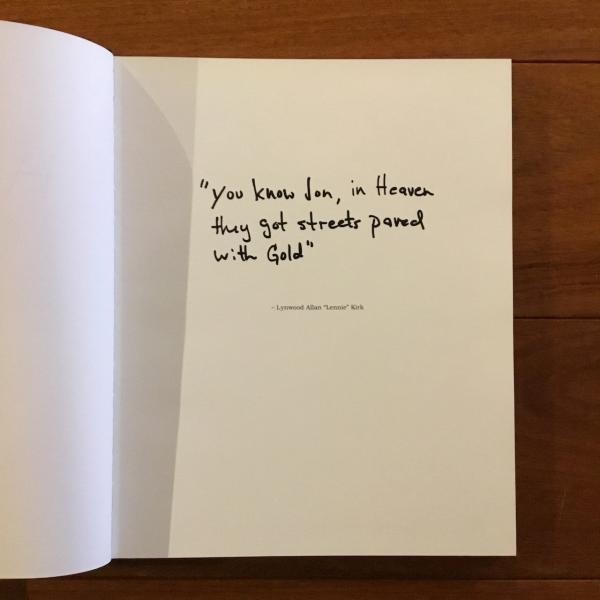 "You know Jon, in Heaven
they got streets paved
with Gold"
– Lynwood Allan "Lennie" Kirk